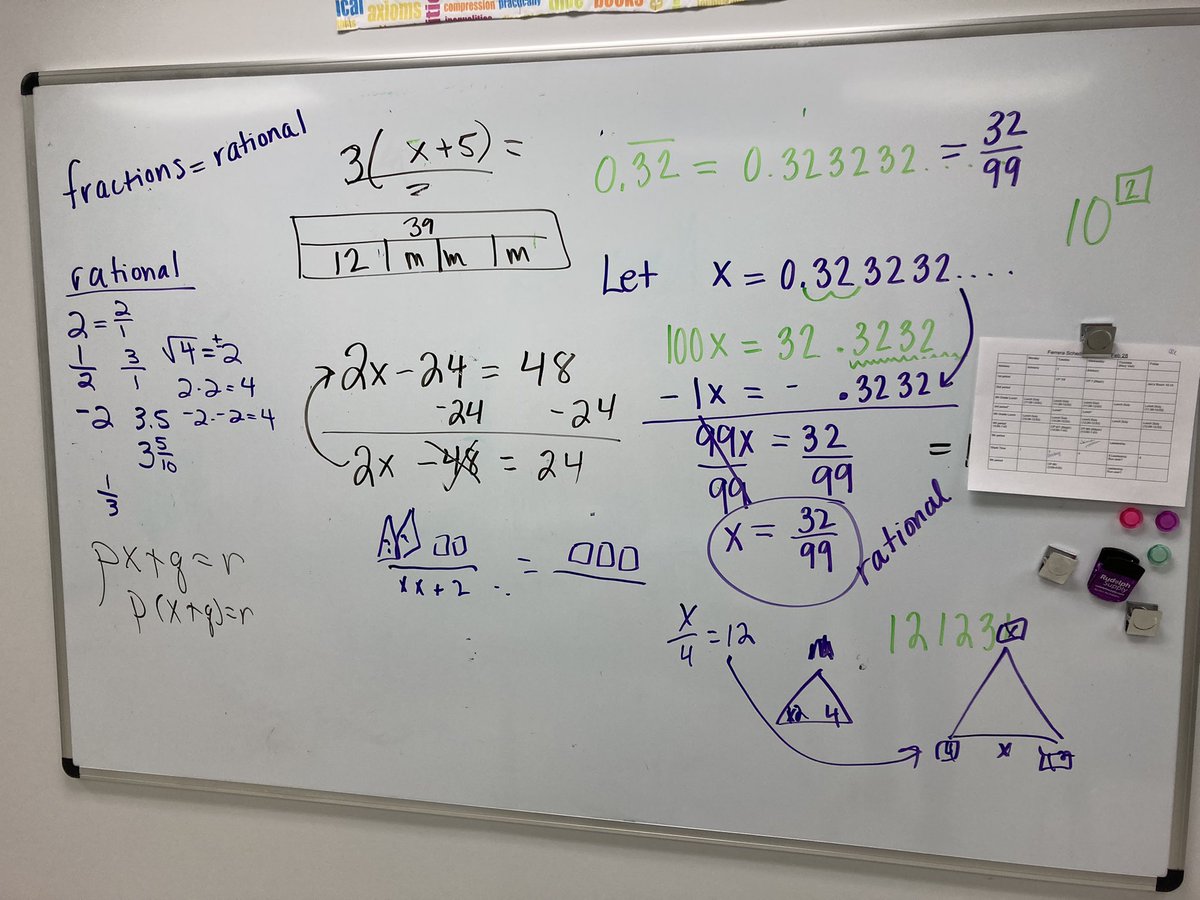 ical axioms
compression practically
books
fractions = rational
rational
2 = 2/1
1/2 3/1 √4 = ±2
2·2=4
-2 3.5 -2·-2=4
3 5/10
1/3
px+q=r
p(x+q)=r
3(x+5) =
39
12 | m | m | m
2x - 24 = 48
-24 -24
2x - 48 = 24
xx + 2
=
0.3̅2̅ = 0.323232... = 32/99
10^2
Let x = 0.323232....
100x = 32.3232
- 1x = - .3232
99x/99 = 32/99
=
x = 32/99
rational
x/4 = 12
m
12 4
12123
x
4 x 12
Rudolph
Supply
Monday Tuesday Wednesday Friday